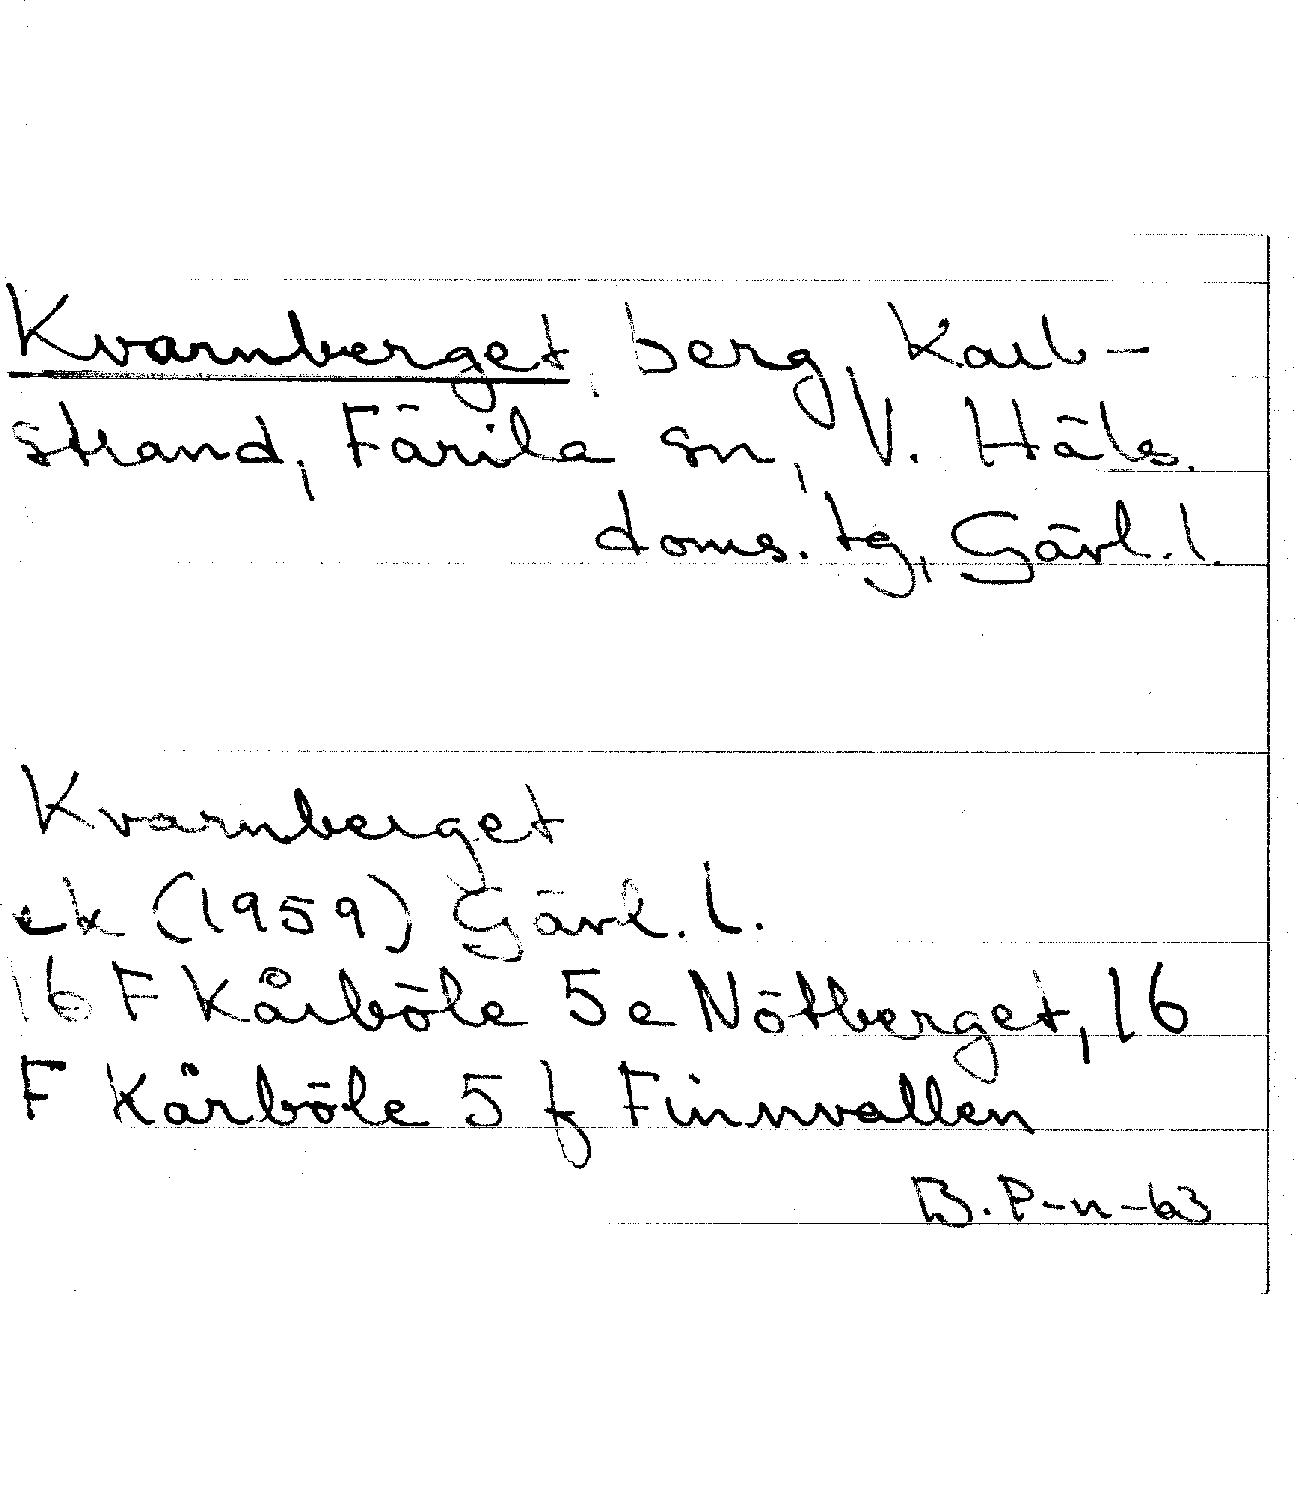 Kvarnberget, berg, Karb-
strand, Färila sn, V. Häls.
doms. tg, Gävl. l.
Kvarnberget
ek (1959) Gävl. l.
16 F Kårböle 5e Nötberget, 16
F Kårböle 5 f Finnvallen
B. P-n-63